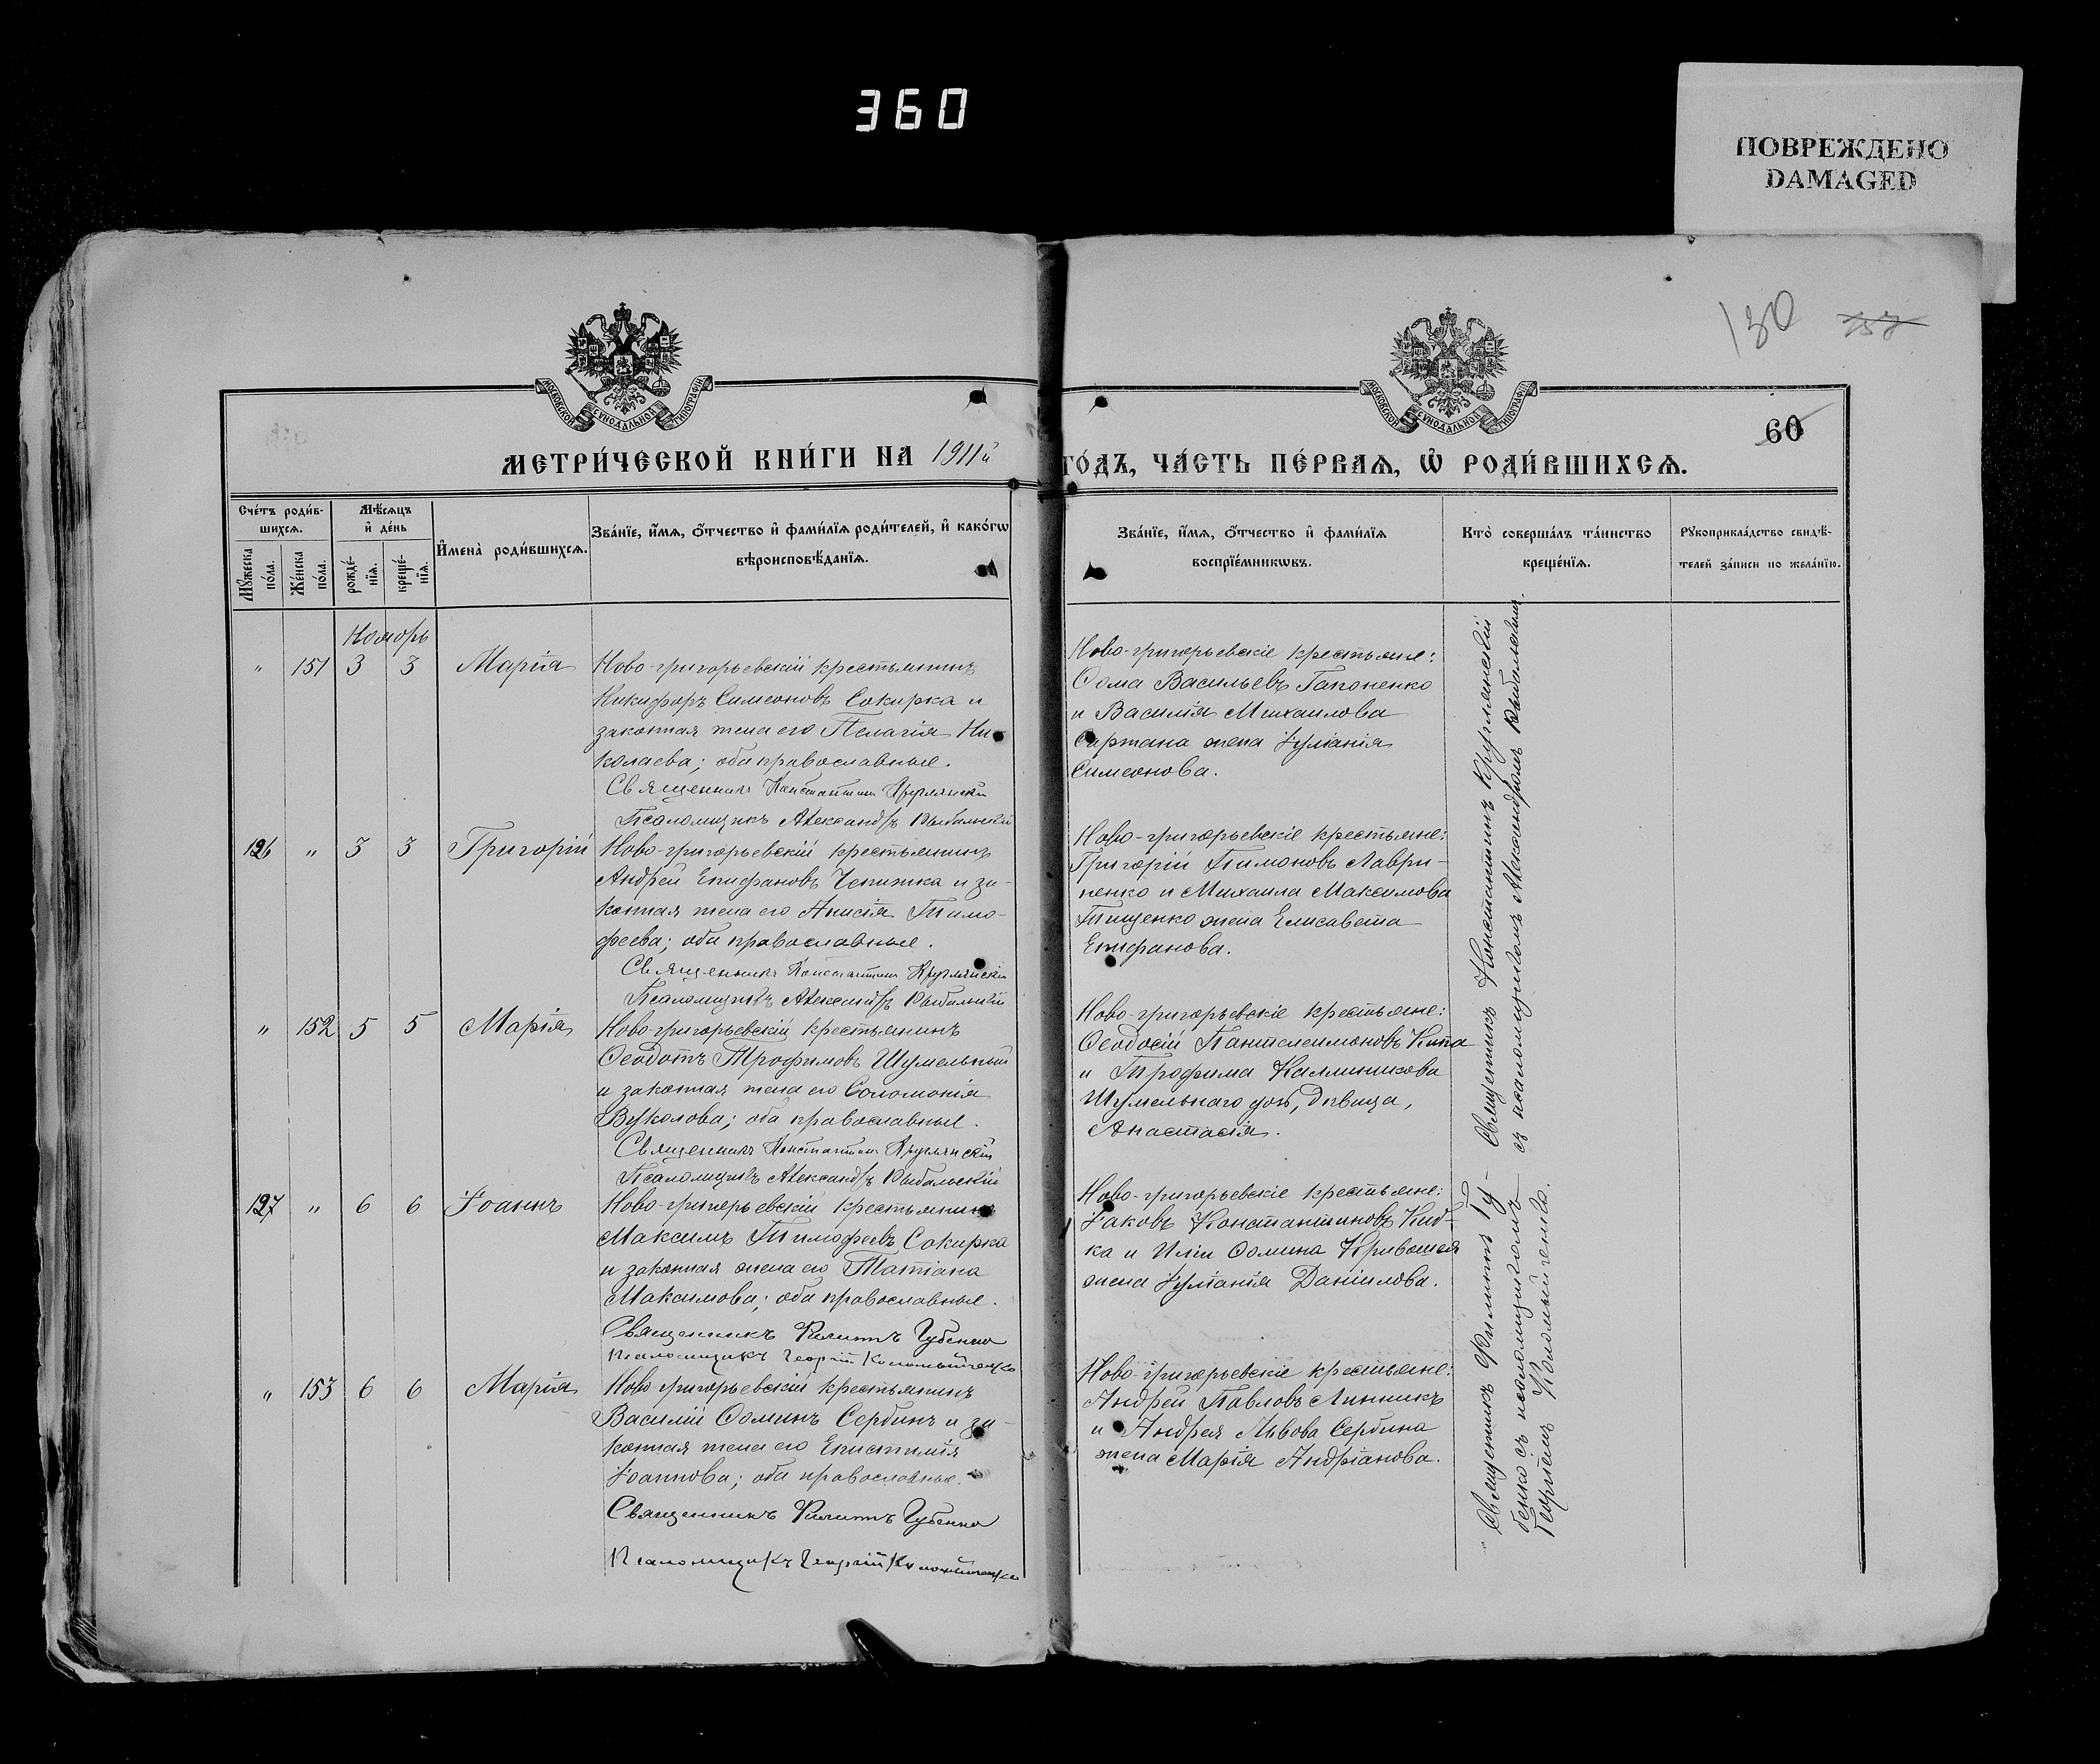 360
ПОВРЕЖДЕНО
DAMAGED
130 157
60
МОСКОВСКОЙ СѴНОДАЛЬНОЙ ТИПОГРАФІИ
МОСКОВСКОЙ СѴНОДАЛЬНОЙ ТИПОГРАФІИ
МЕТРИ́ЧЕСКОЙ КНИ́ГИ НА 1911й
ГО́ДЪ, ЧА́СТЬ ПЕ́РВАЯ, Ѿ РОДИ́ВШИХСЯ.
Сче́тъ роди́в-
шихся.
Мꙋ́жеска
по́ла.
Же́нска
по́ла.
Мѣ́сяцъ
и҆ де́нь
рожде́-
нїя.
креще́-
нїя.
И҆мена̀ роди́вшихся.
Зва́нїе, и҆́мя, ѻ҆́тчество и҆ фами́лїя роди́телей, и҆ како́гѡ
вѣроисповѣ́данїя.
Зва́нїе, и҆́мя, ѻ҆́тчество и҆ фами́лїя
воспрїе́мникѡвъ.
Кто̀ соверша́лъ та́инство
креще́нїя.
Рꙋкоприкла́дство свидѣ́-
телей за́писи по жела́нїю.
Ноябрь
" 151 3 3 Марія
Ново-григорьевскій крестьянинъ
Никифоръ Симеоновъ Сокирка и
законная жена его Пелагія Ни-
колаева; оба православные.
Священникъ Константинъ Круглянскій
Псаломщикъ Александръ Рыбальскій
Ново-григорьевскіе крестьяне:
Ѳома Васильевъ Гапоненко
и Василія Михаилова
Сиртана жена Іуліанія
Симеонова.
126 " 3 3 Григорій
Ново-григорьевскій крестьянинъ
Андрей Епифановъ Чепижка и за-
конная жена его Анисія Тимо-
феева; оба православные.
Священникъ Константинъ Круглянскій
Псаломщикъ Александръ Рыбальскій
Ново-григорьевскіе крестьяне:
Григорій Тимоновъ Лаври-
ненко и Михаила Максимова
Тищенко жена Елисавета
Епифанова.
" 152 5 5 Марія
Ново-григорьевскій крестьянинъ
Ѳеодотъ Трофимовъ Шумельный
и законная жена его Соломонія
Вуколова; оба православные.
Священникъ Константинъ Круглянскій
Псаломщикъ Александръ Рыбальскій
Ново-григорьевскіе крестьяне:
Ѳеодосій Пантелеимоновъ Кипа
и Трофима Каллиникова
Шумельнаго дочь, дѣвица,
Анастасія.
127 " 6 6 Іоаннъ
Ново-григорьевскій крестьянинъ
Максимъ Тимофеевъ Сокирка
и законная жена его Татіана
Максимова; оба православные.
Священникъ Филиппъ Губенко
Псаломщикъ Георгій Коломыйченко
Ново-григорьевскіе крестьяне:
Іаковъ Константиновъ Кид-
ка и Иліи Ѳомина Кривошея
жена Іуліанія Даніилова.
" 153 6 6 Марія
Ново-григорьевскій крестьянинъ
Василій Ѳоминъ Сербинъ и за-
конная жена его Епистимія
Іоаннова; оба православные.
Священникъ Филиппъ Губенко
Псаломщикъ Георгій Коломыйченко
Ново-григорьевскіе крестьяне:
Андрей Павловъ Линникъ
и Андрея Львова Сербина
жена Марія Андріанова.
Священникъ Константинъ Круглянскій
съ псаломщикомъ Александромъ Рыбальскимъ.
Священникъ Филиппъ Гу-
бенко съ псаломщикомъ
Георгіемъ Коломыйченко.